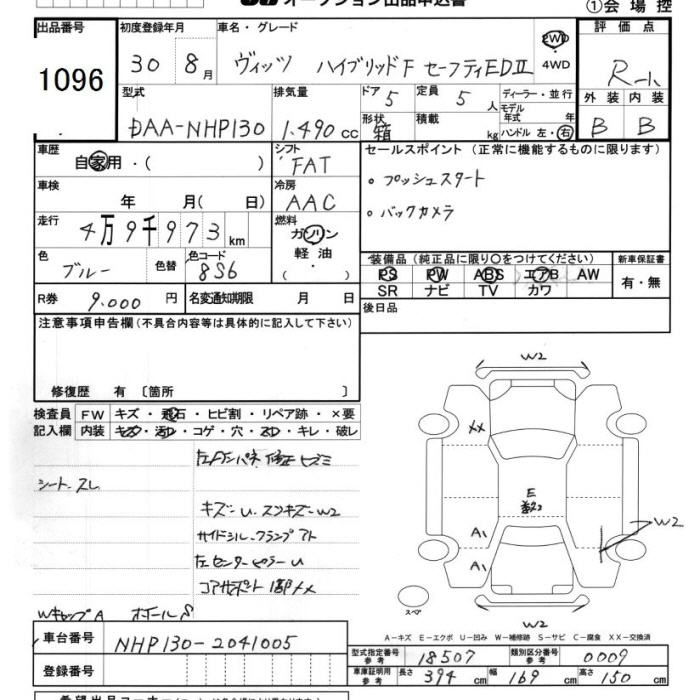 オークション出品申込書
①会場控
出品番号 初度登録年月 車名・グレード 評価点
1096 30 8月 ヴィッツ ハイブリッドF セーフティEDⅡ 2WD・4WD R-小
型式 排気量 ドア 定員 ディーラー・並行 外装 内装
DAA-NHP130 1,490cc 5 5人 モデル年式 年 B B
形状 積載 ハンドル 左・右
箱 kg
車歴 シフト セールスポイント (正常に機能するものに限ります)
自家用・( ) FAT 。プッシュスタート
車検 冷房
年 月( 日) AAC 。バックカメラ
走行 燃料
4万9千973km ガソリン
軽油
・( )・
色 色替 色コード 装備品(純正品に限り〇をつけてください) 新車保証書
ブルー 8S6 PS PW ABS エアB AW 有・無
SR ナビ TV カワ
R券 9.000円 名変通知期限 月 日 後日品
注意事項申告欄(不具合内容等は具体的に記入して下さい)
修復歴 有 〔箇所 〕
検査員 FW キズ・飛石・ヒビ割・リペア跡・×要
記入欄 内装 キズ・汚レ・コゲ・穴・スレ・キレ・破レ
シート スレ
キズ-U スンキズ-W2
サイドシル-クランプアト
左センターピラーU
コアサポート
WキャップA ホイールS
W2
XX
E
A1
A1
W2
W2
スペア
A-キズ E-エクボ U-凹み W-補修跡 S-サビ C-腐食 XX-交換済
車台番号 NHP130-2041005
型式指定番号 参考 18507 類別区分番号 参考 0009
登録番号 車庫証明用 参考 長さ 394cm 幅 169cm 高さ 150cm
希望出品コーナー